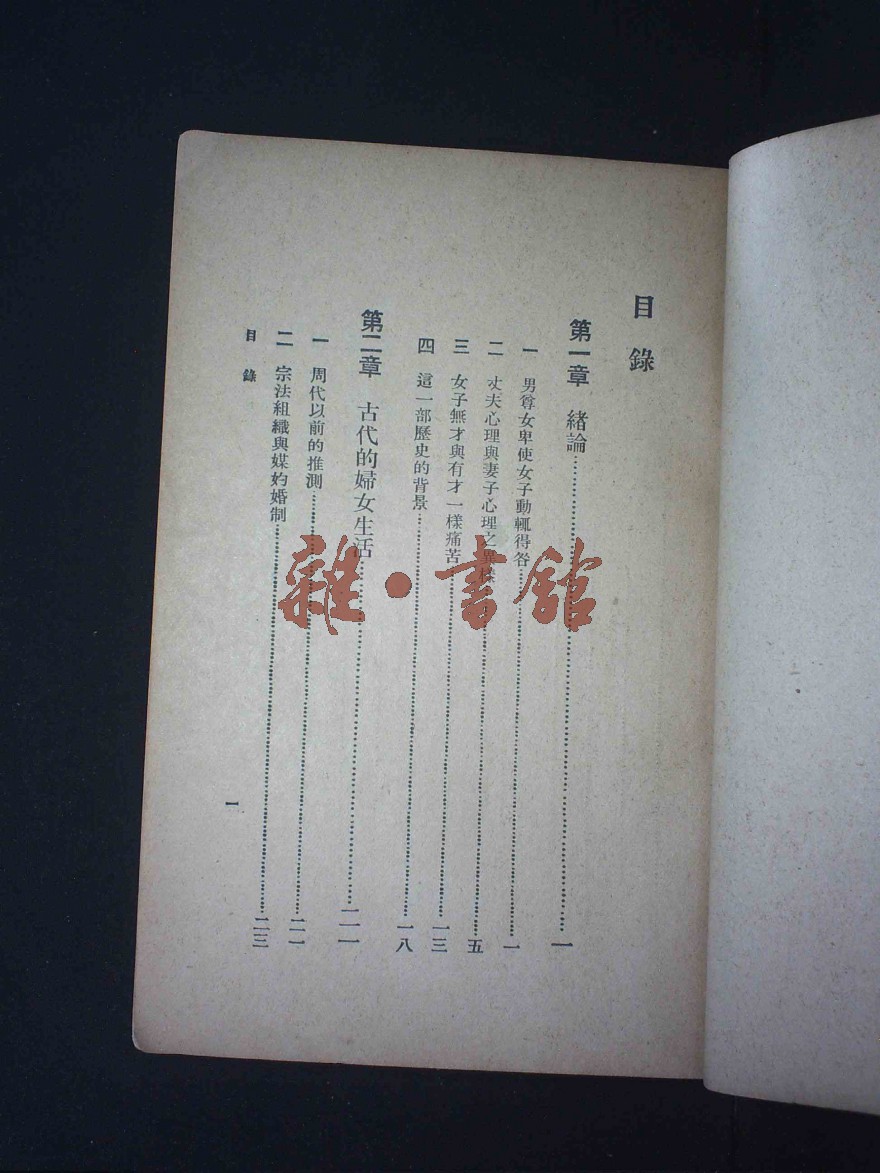 目錄
第一章 緒論……一
一 男尊女卑使女子動輒得咎……一
二 丈夫心理與妻子心理之異樣……五
三 女子無才與有才一樣痛苦……一三
四 這一部歷史的背景……一八
第二章 古代的婦女生活……二一
一 周代以前的推測……二一
二 宗法組織與媒妁婚制……二三
目錄
一
雜·書館